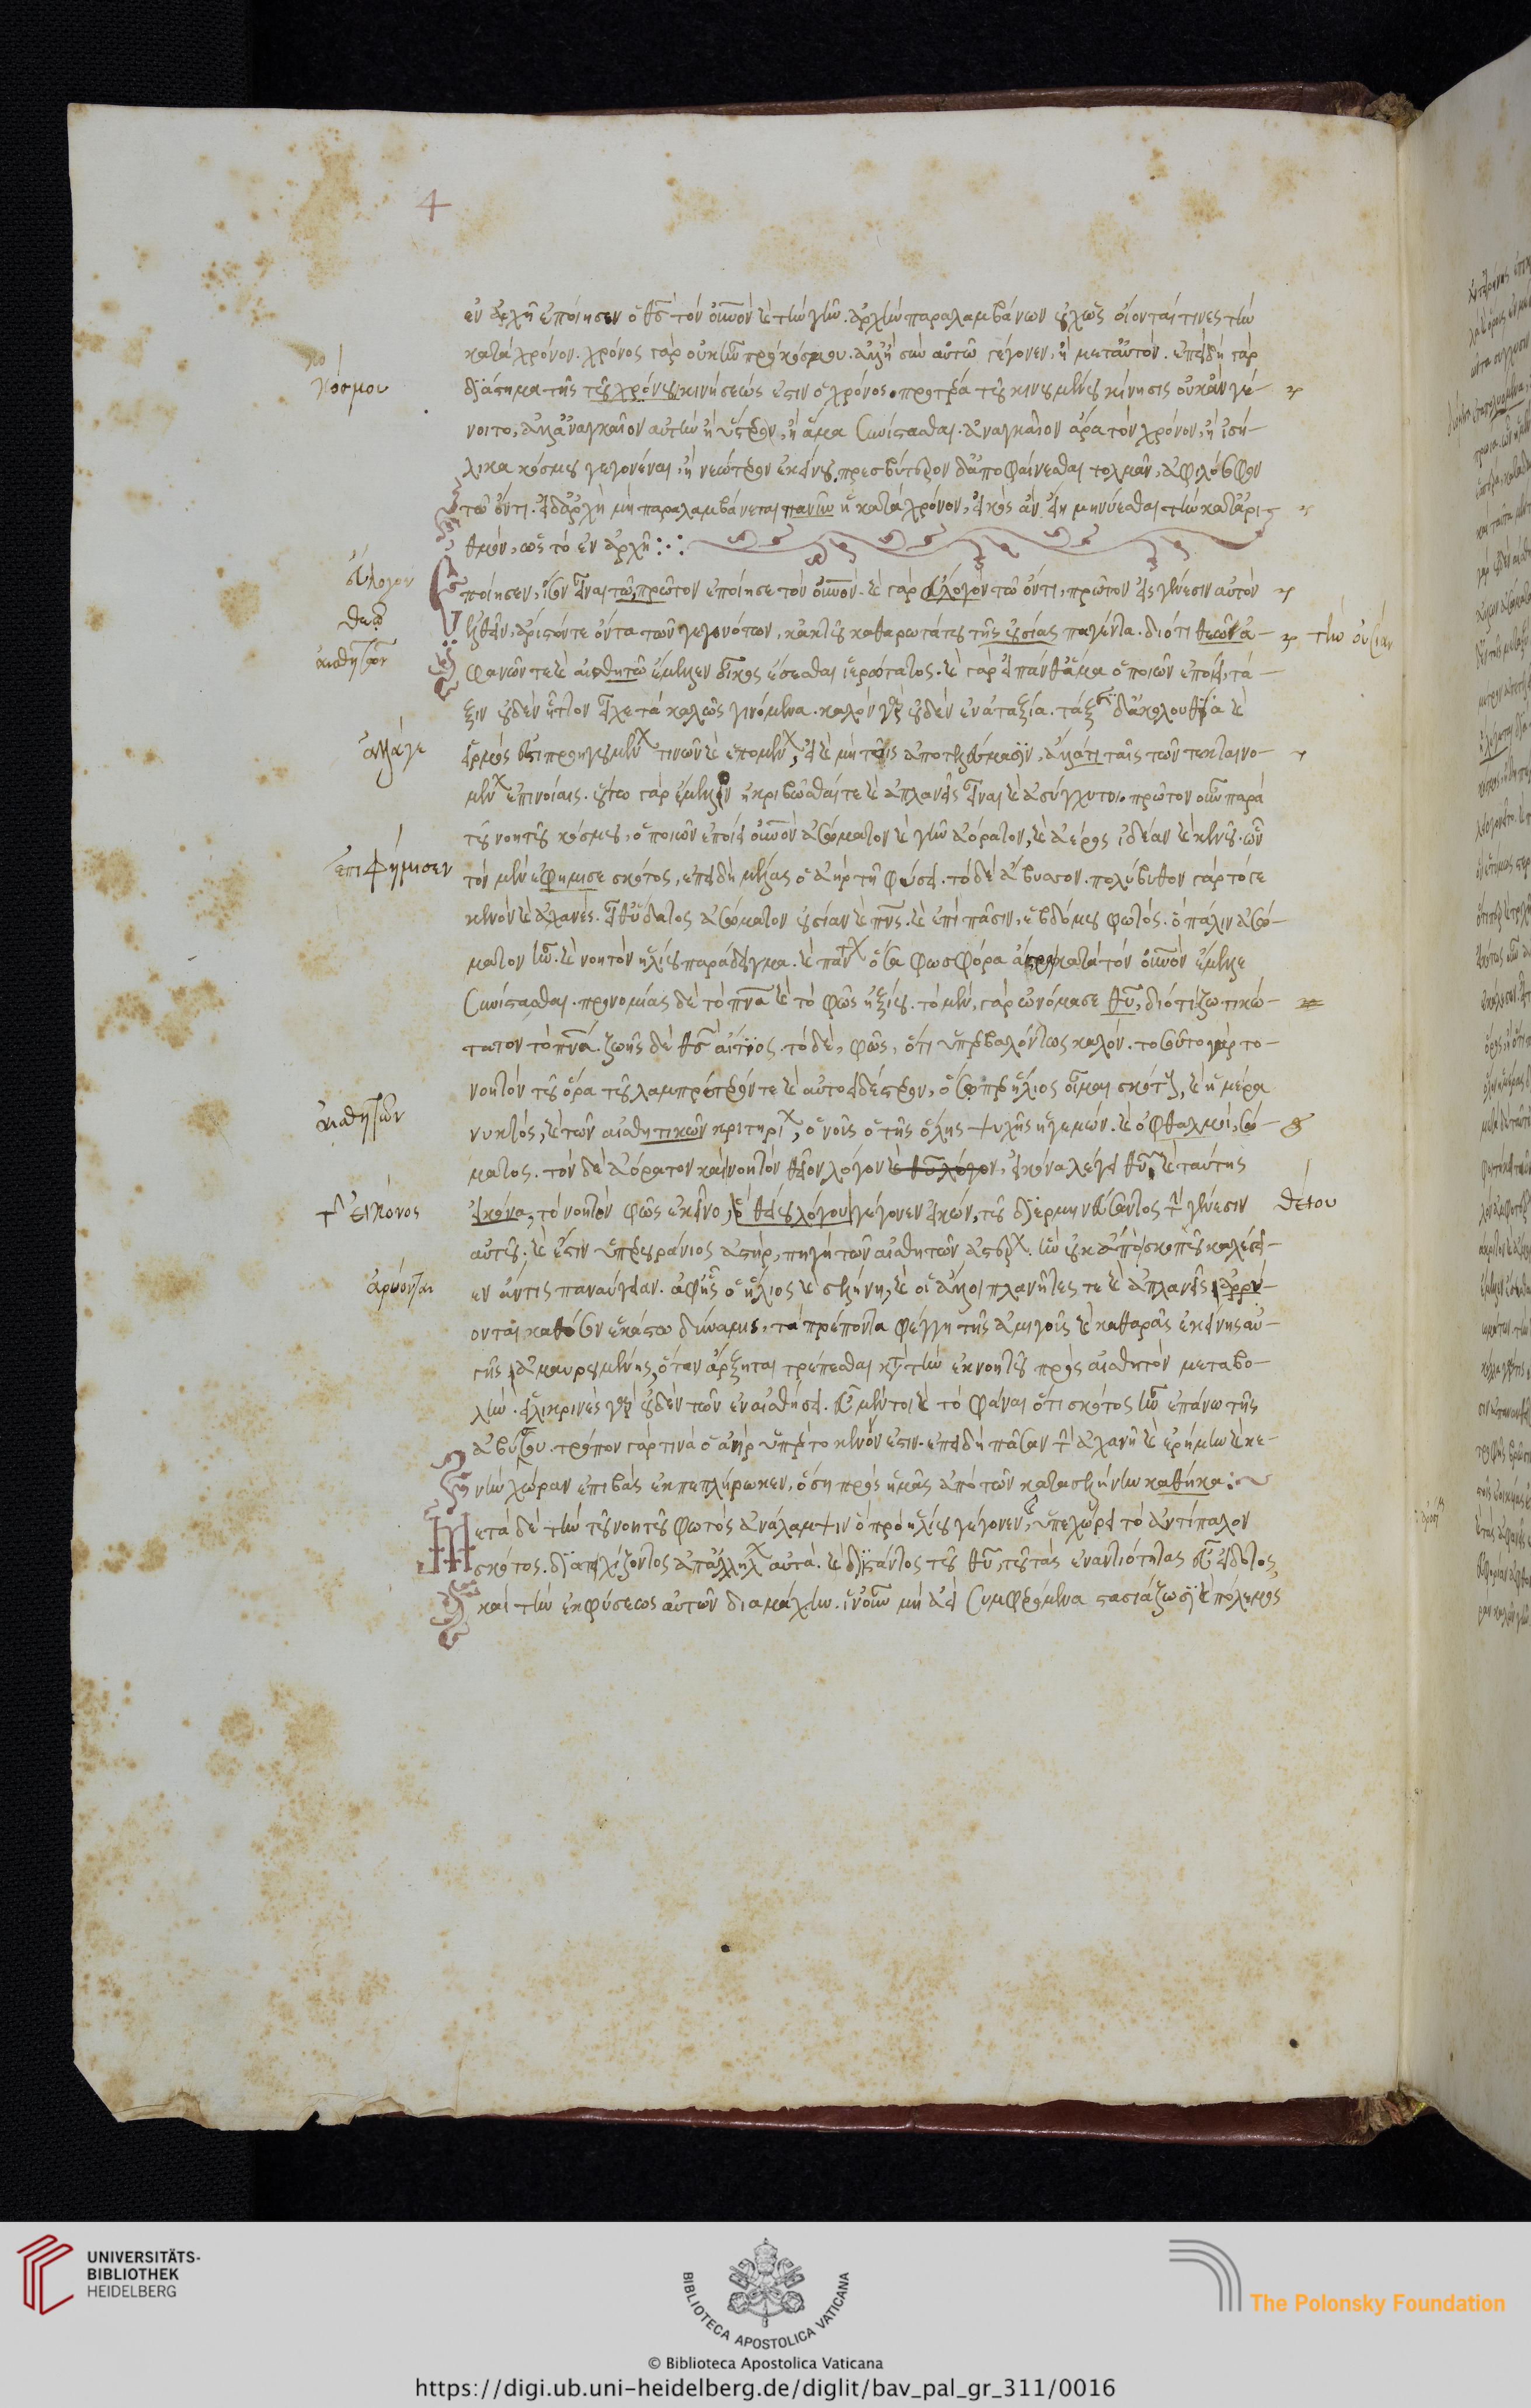 4
ἐν ἀρχῇ ἐποίησεν ὁ θς τὸν οὐνον καὶ τὴν γῆν. ἀρχὴν παραλαμβάνων οὐχ ὡς οἴονταί τινες τὴν
κατὰ χρόνον. χρόνος γὰρ οὐκ ἦν πρὸ κόσμου. ἀλλ' ἢ σὺν αὐτῷ γέγονεν, ἢ μετ' αὐτόν. ἐπειδὴ γὰρ
κόσμου
διάστημα τῆς τοῦ χρόνου κινήσεώς ἐστιν ὁ χρόνος. προτέρα τοῦ κινουμένου κίνησις οὐκ ἂν γέ-
νοιτο, ἀλλ' ἀναγκαῖον αὐτὴν ἢ ὕστερον, ἢ ἅμα συνίστασθαι. ἀναγκαῖον ἄρα τὸν χρόνον, ἢ ἰσή-
λικα κόσμου γεγονέναι, ἢ νεώτερον ἐκείνου. πρεσβύτερον δ' ἀποφαίνεσθαι τολμᾶν, ἀφιλόσοφον
τῷ ὄντι. εἰ δ' ἀρχὴ μὴ παραλαμβάνεται τανῦν ἡ κατὰ χρόνον, εἰκὸς ἂν εἴη μηνύεσθαι τὴν κατ' ἀρι-
θμόν, ὡς τὸ ἐν ἀρχῇ:·:
εὔλογον
Ἐποίησεν, ἴσον εἶναι τῷ, πρῶτον ἐποίησε τὸν οὐνον. καὶ γὰρ εὔλογον τῷ ὄντι, πρῶτον εἰς γένεσιν αὐτὸν
ἐλθεῖν, ἄριστόν τε ὄντα τῶν γεγονότων, κἀκ τοῦ καθαρωτάτου τῆς οὐσίας παγέντα. διότι θεῶν ἀ- τὴν οὐσίαν
αἰσθητῶν
φανῶν τε καὶ αἰσθητῶ ἔμελλεν οἶκος ἔσεσθαι ἱερώτατος. καὶ γὰρ εἰ πάνθ' ἅμα ὁ ποιῶν ἐποίει, τά-
ξιν οὐδὲν ἧττον εἶχε τὰ καλῶς γινόμενα. καλὸν γὰρ οὐδὲν ἐν ἀταξία. τάξις δ' ἀκολουθία καὶ
ἀλλάγε
εἱρμός ἐστι προηγουμένων τινῶν καὶ ἑπομένων, εἰ καὶ μὴ τοῖς ἀποτελέσμασιν, ἀλλάτι ταῖς τῶν τεκταινο-
μένων ἐπινοίαις. οὕτω γὰρ ἔμελλον ἠκριβῶσθαί τε καὶ ἀπλανεῖς εἶναι καὶ ἀσύγχυτοι. πρῶτον οὖν παρὰ
τοῦ νοητοῦ κόσμου, ὁ ποιῶν ἐποίει οὐνον ἀσώματον καὶ γῆν ἀόρατον, καὶ ἀέρος ἰδέαν καὶ κενοῦ. ὧν
ἐπιφήμισεν
τὸν μὲν ἐφήμισε σκότος, ἐπειδὴ μέλας ὁ ἀὴρ τῇ φύσει. τὸ δὲ ἄβυσσον. πολύβυθον γὰρ τό γε
κενὸν καὶ ἀχανές. εἶθ' ὕδατος ἀσώματον οὐσίαν καὶ πνς. καὶ ἐπὶ πᾶσιν, ἑβδόμου φωτός. ὃ πάλιν ἀσώ-
ματον ἦν. καὶ νοητὸν ἡλίου παράδειγμα. καὶ πάντων ὅσα φωσφόρα ἄστρα κατὰ τὸν οὐνον ἔμελλε
συνίστασθαι. προνομίας δὲ τὸ πνα καὶ τὸ φῶς ἠξίου. τὸ μὲν, γὰρ ὠνόμασε θυ, διότι ζωτικώ-
τατον τὸ πνα. ζωῆς δὲ θς αἴτιος. τὸ δὲ, φῶς, ὅτι ὑπερβαλόντως καλόν. τοσοῦτο γὰρ τὸ
νοητὸν τοῦ ὁρα τοῦ λαμπρότερόν τε καὶ αὐτοειδέστερον, ὅσωπερ ἥλιος οἶμαι σκότους, καὶ ἡμέρα
αἰσθητῶν
νυκτὸς, καὶ τῶν αἰσθητικῶν κριτηρίων, ὁ νοῦς ὁ τῆς ὅλης ψυχῆς ἡγεμών. καὶ ὀφθαλμοὶ, σώ-
ματος. τὸν δὲ ἀόρατον καὶ νοητὸν θεῖον λόγον καὶ θυ λόγον, εἰκόνα λέγει θυ. καὶ ταύτης
τ' εἰκόνος
εἰκόνα, τὸ νοητὸν φῶς ἐκεῖνο, ὃ θείου λόγου γέγονεν εἰκών, τοῦ διερμηνεύσαντος τὴν γένεσιν θείου
αὐτοῦ. καὶ ἔστιν ὑπερουράνιος ἀστήρ, πηγὴ τῶν αἰσθητῶν ἀστέρων. ἣν οὐκ ἀπὸ σκοποῦ καλέσει-
ἀρύονται
εν ἄν τις παναύγειαν. ἀφ' ἧς ὁ ἥλιος καὶ σελήνη, καὶ οἱ ἄλλοι πλανῆτες τε καὶ ἀπλανεῖς ἀρρύ-
ονται καθ' ὅσον ἑκάστω δύναμις, τὰ πρέποντα φέγγη τῆς ἀμιγοῦς καὶ καθαρᾶς ἐκείνης αὐ-
γῆς ἀμαυρουμένης, ὅταν ἄρξηται τρέπεσθαι κατὰ τὴν ἐκ νοητοῦ πρὸς αἰσθητὸν μεταβο-
λήν. εἰλικρινὲς γὰρ οὐδὲν τῶν ἐν αἰσθήσει. εὖ μέντοι καὶ τὸ φάναι ὅτι σκότος ἦν ἐπάνω τῆς
ἀβύσσου. τρόπον γάρ τινα ὁ ἀὴρ ὑπὲρ τὸ κενόν ἐστιν. ἐπειδὴ πᾶσαν τὴν ἀχανῆ καὶ ἐρήμην καὶ κε-
νὴν χώραν ἐπιβὰς ἐκπεπλήρωκεν, ὅση πρὸς ἡμᾶς ἀπὸ τῶν κατὰ σελήνην καθήκα:~
Μετὰ δὲ τὴν τοῦ νοητοῦ φωτὸς ἀνάλαμψιν ὃ πρὸ ἡλίου γέγονεν, ὑπεχώρει τὸ ἀντίπαλον
σκότος. διατειχίζοντος ἀπ' ἀλλήλων αὐτὰ. καὶ διϊστάντος τοῦ θυ, τοῦ τὰς ἐναντιότητας εὖ εἰδότος,
καὶ τὴν ἐκ φύσεως αὐτῶν διαμάχην. ἵν' οὖν μὴ ἀεὶ συμφερόμενα στασιάζωσι καὶ πόλεμος
UNIVERSITÄTS-
BIBLIOTHEK
HEIDELBERG
BIBLIOTECA APOSTOLICA VATICANA
The Polonsky Foundation
© Biblioteca Apostolica Vaticana
https://digi.ub.uni-heidelberg.de/diglit/bav_pal_gr_311/0016